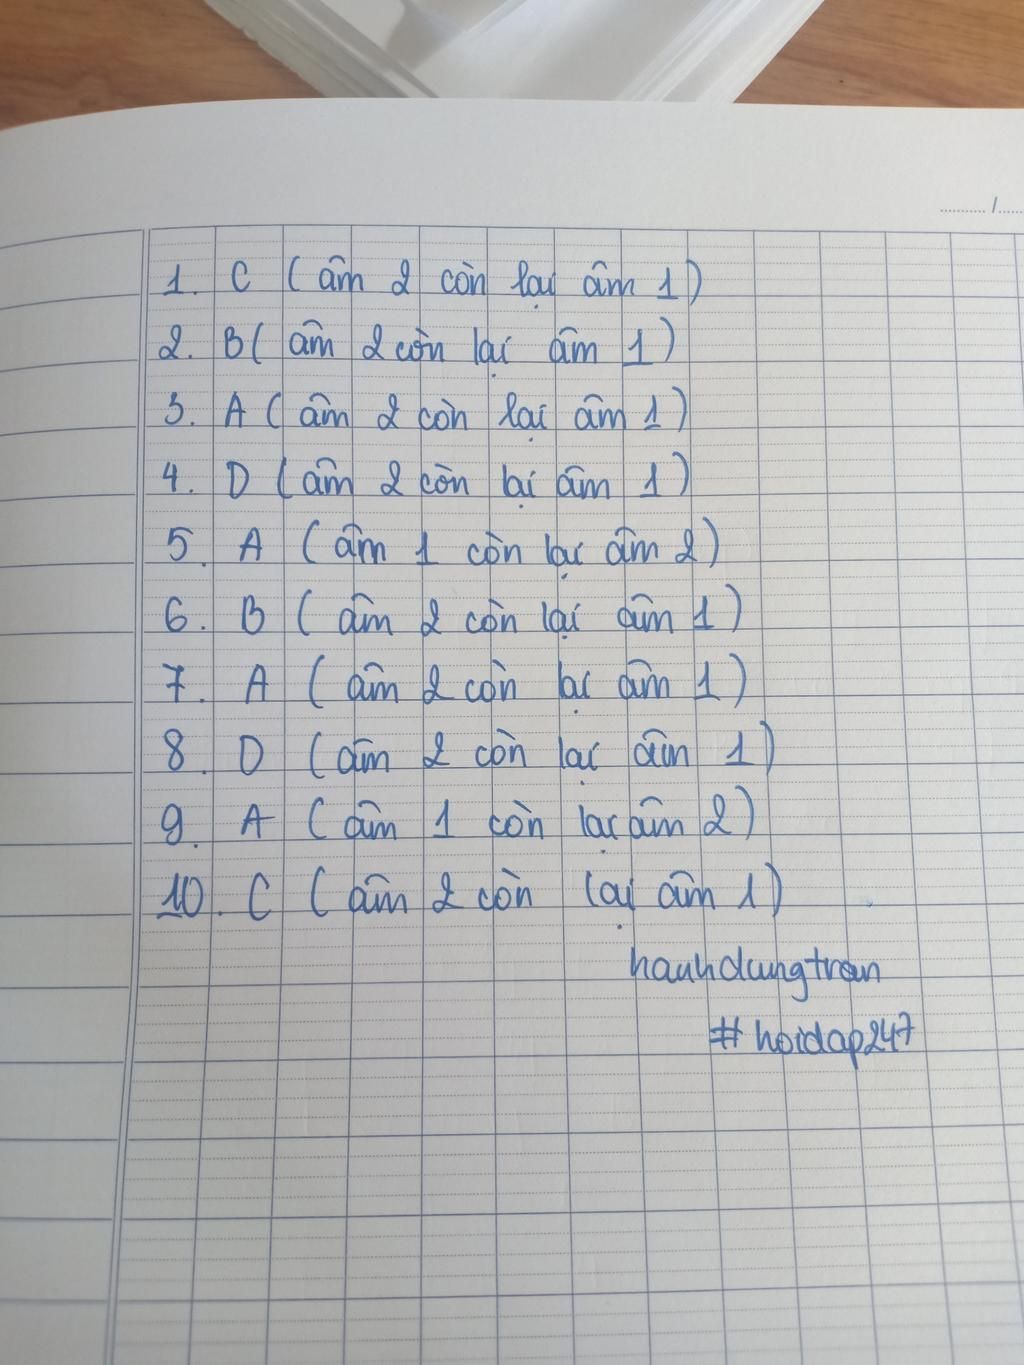 1. C (âm 2 còn lại âm 1)
2. B ( âm 2 còn lại âm 1)
3. A ( âm 2 còn lại âm 1)
4. D ( âm 2 còn lại âm 1)
5. A ( âm 1 còn lại âm 2)
6. B ( âm 2 còn lại âm 1)
7. A ( âm 2 còn lại âm 1)
8. D (âm 2 còn lại âm 1)
9. A ( âm 1 còn lại âm 2)
10. C ( âm 2 còn lại âm 1)
hanhdungtran
# hoidap247